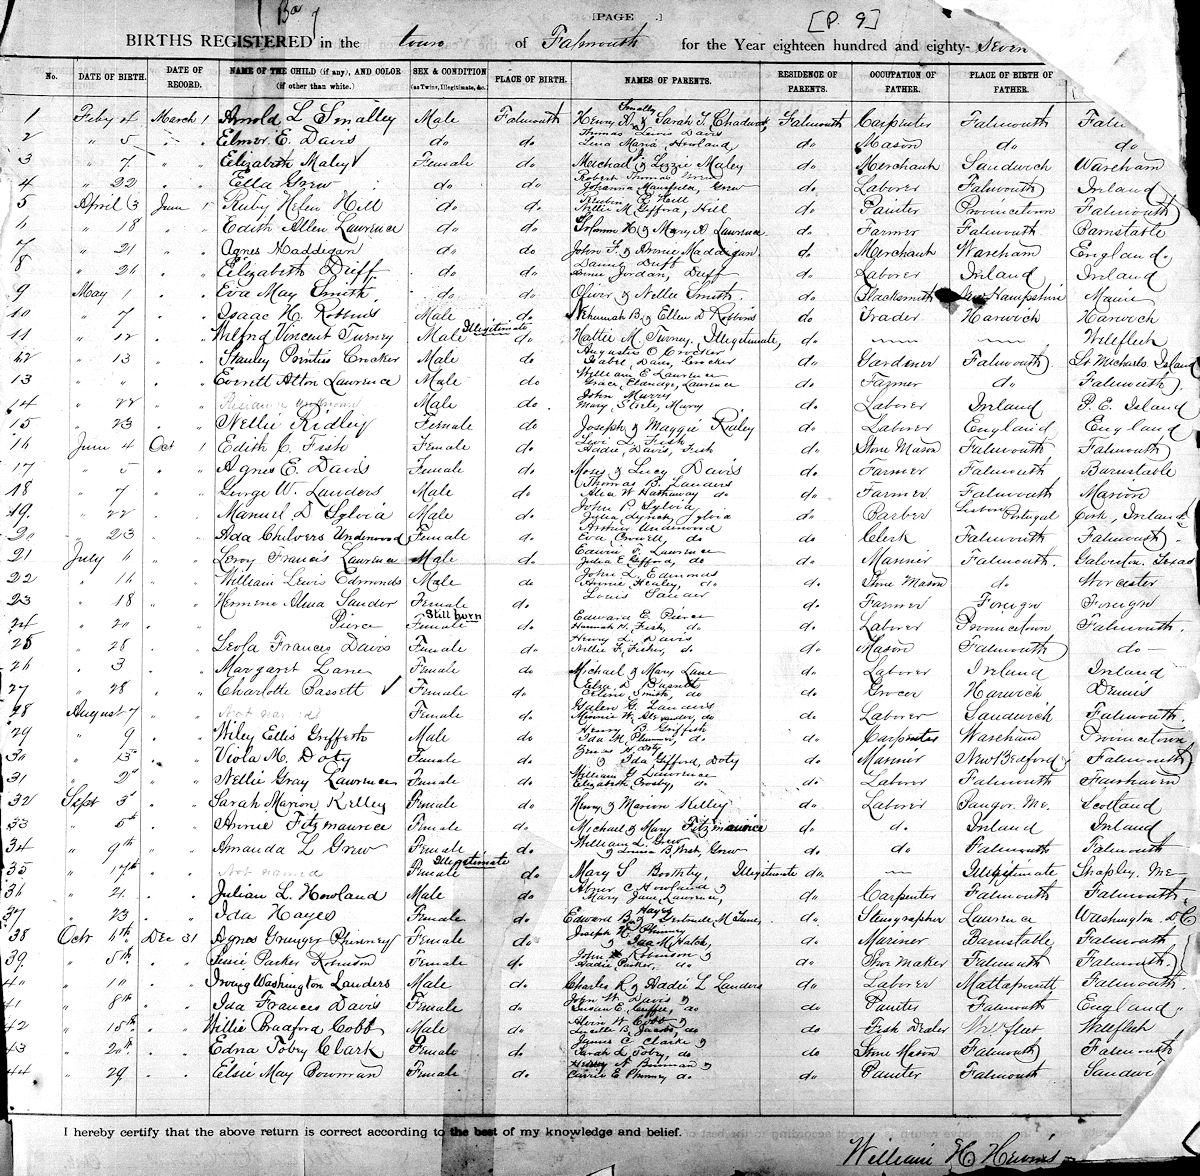 [PAGE .]
[P. 9]
BIRTHS REGISTERED in the town of Falmouth for the Year eighteen hundred and eighty-seven
No. DATE OF BIRTH. DATE OF RECORD. NAME OF THE CHILD (if any), AND COLOR (if other than white.) SEX & CONDITION (as Twins, Illegitimate, &c.) PLACE OF BIRTH. NAMES OF PARENTS. RESIDENCE OF PARENTS. OCCUPATION OF FATHER. PLACE OF BIRTH OF FATHER.
1 Feby 4 March 1 Arnold L Smalley Male Falmouth Henry A & Sarah T. Chadwick, Smalley Falmouth Carpenter Falmouth Falm
2 " 5 " " Elmer E. Davis do do Thomas Lewis Davis Lena Maria Howland, do Mason do do
3 " 7 " " Elizabeth Maley Female do & Lizzie Maley do Merchant Sandwich Wareham
4 " 22 " " Ella Grew do do Robert Thomas Grew Johanna Mansfield, Grew do Laborer Falmouth Ireland
5 April 3 June 1 Ruby Helen Hill do do Reuben R Hill Nellie M Gifford, Hill do Painter Provincetown Falmouth
6 " 18 " " Edith Allen Lawrence do do Solomon H & Mary A Lawrence do Farmer Falmouth Barnstable
7 " 21 " " Agnes Maddigan do do John F. & Annie Maddigan do Merchant Wareham England.
8 " 26 " " Elizabeth Duff do do Daniel Duff Annie Jordan, Duff do Laborer Ireland Ireland
9 May 1 " " Eva May Smith do do Oliver & Nellie Smith do Blacksmith New Hampshire Maine
10 " 7 " " Isaac H. Robbins Male do Nehemiah B & Ellen D Robbins do Trader Harwich Harwich
11 " 12 " " Wilfred Vincent Turney Male Illegitimate do Hattie M. Turney, Illegitimate, do Wellfleet
12 " 13 " " Stanley Prentiss Crocker Male do Augustus O Crocker Isabel Davis, Crocker do Gardener Falmouth St Michaels Island
13 " " " " Everett Alton Lawrence Male do William E Lawrence Grace Eldredge, Lawrence do Farmer do Falmouth
14 " 22 " " Male do John Murry Mary Steele, Murry do Laborer Ireland P. E. Island
15 " 23 " " Nellie Ridley Female do Joseph & Maggie Ridley do Laborer England England
16 June 4 Oct 1 Edith C. Fish Female do Levi L Fish Hadie Davis, Fish do Stone Mason Falmouth Falmouth
17 " 5 " " Agnes E. Davis Female do Moses & Lucy Davis do Farmer Falmouth Barnstable
18 " 7 " " George W. Landers Male do Thomas B. Landers Alice W Hathaway do do Farmer Falmouth Marion
19 " 22 " " Manuel D Sylvia Male do John P Sylvia Julia Lynch, Sylvia do Barber Lisbon Portugal Cork, Ireland
20 " 23 " " Ada Chilvers Underwood Female do Arthur Underwood Eva Crowell, do do Clerk Falmouth Falmouth
21 July 6 " " Leroy Francis Lawrence Male do Edwin T. Lawrence Julia E Gifford, do do Mariner Falmouth Galveston Texas
22 " 16 " " William Lewis Edmonds Male do John L. Edmonds Annie Healey, do do Stone Mason do Worcester
23 " 18 " " Alma Sander Female do Louis Sander do Farmer Foreign Foreign
24 " 20 " " Pierce Female Still born do Edward E. Pierce Hannah W. Fish, do do Laborer Provincetown Falmouth.
25 " 28 " " Leola Frances Davis Female do Henry L. Davis Nellie F. Fisher, do do Mason Falmouth do
26 " 3 " " Margaret Lane Female do Michael & Mary Lane do Laborer Ireland Ireland
27 " 28 " " Charlotte Bassett Female do Elza D Bassett Smith, do do Grocer Harwich Dennis
28 August 7 " " Not named Female do Galen G. Landers Minnie W. Alexander, do do Laborer Sandwich Falmouth.
29 " 9 " " Wiley Ellis Griffeth Male do Henry B Griffith Ida M. Phinney, do do Carpenter Wareham Provincetown
30 " 15 " " Viola M. Doty Female do Doty & Ida Gifford, Doty do Mariner New Bedford Falmouth
31 " 2 " " Nellie Gray Lawrence Female do William G Lawrence Elizabeth Crosby, do do Laborer Falmouth Fairhaven
32 Sept 3 " " Sarah Marion Kelley Female do Henry & Marion Kelley do Laborer Bangor. Me. Scotland
33 " 5th " " Annie Fitzmaurice Female do Michael & Mary Fitzmaurice do do Ireland Ireland
34 " 9th " " Amanda L Grew Female do William L Grew & Louisa B West, Grew do do Falmouth Falmouth
35 " 17th " " Not named Female Illegitimate do Mary S Boothby, Illegitimate do Illegitimate Shapley, Me
36 " 21 " " Julian L. Howland Male do Abner C Howland & Mary Jane Lawrence, do Carpenter Falmouth Falmouth.
37 " 23 " " Ida Hayes Female do Edward B Hayes & Gertrude M. do Stenographer Lawrence Washington D.C
38 Octr 4th Dec 31 Agnes Phinney Female do Joseph H Phinney & Ida M Hatch, do Mariner Barnstable Falmouth
39 " 5th " " Susie Parker Robinson Female do John Robinson & Hadie Parker, do do Shoe Maker Falmouth Falmouth.
40 " 10 " " Irving Washington Landers Male do Charles R & Hadie L Landers do Laborer Mattapoisett Falmouth
41 " 8th " " Ida Frances Davis Female do John W. Davis & Susan E. do do Painter Falmouth England
42 " 15th " " Willie Bradford Cobb Male do Alvin W Cobb & Lucille B Jacobs, do do Fish Dealer Wellfleet Wellfleet
43 " 20th " " Edna Tobey Clark Female do James C Clarke & Sarah L Tobey, do do Stone Mason Falmouth Falmouth
44 " 29 " " Elsie May Bowman Female do Henry N Bowman & Carrie E Phinney do do Painter Falmouth Sandwi
I hereby certify that the above return is correct according to the best of my knowledge and belief.
William H. Hewins